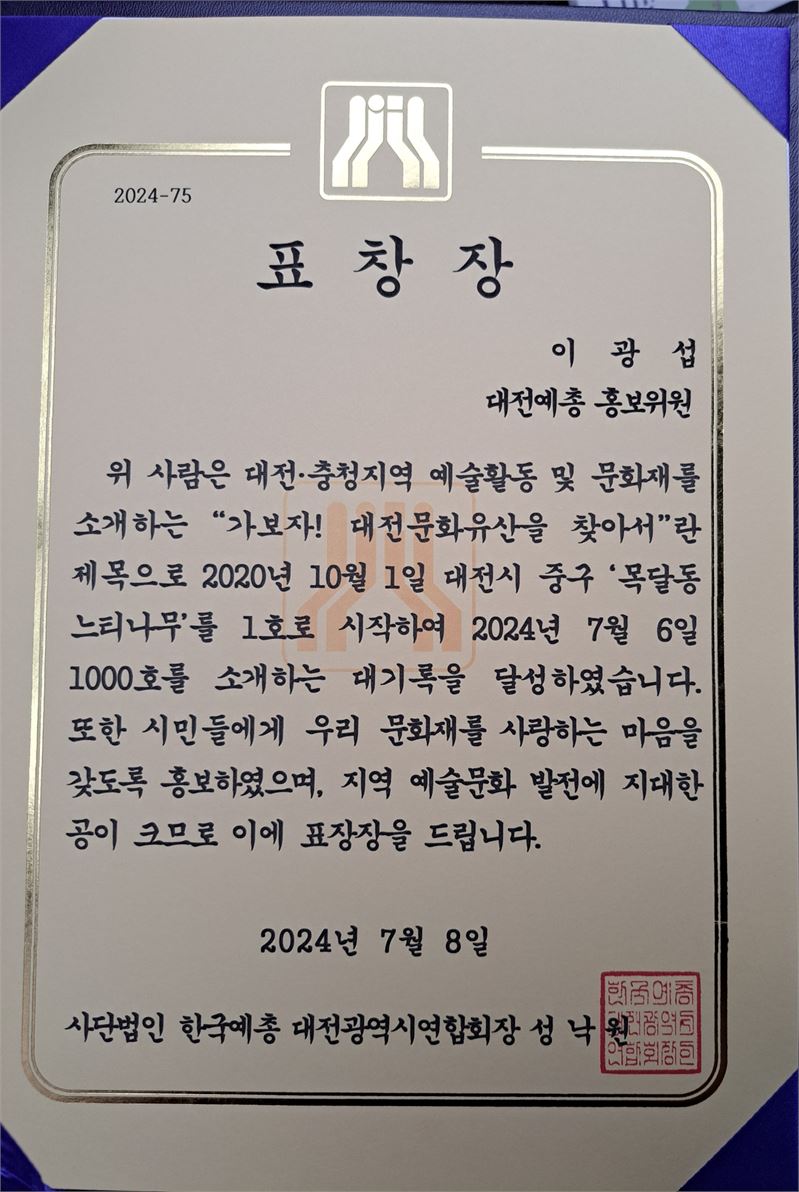 2024-75
표 창 장
이 광 섭
대전예총 홍보위원
위 사람은 대전·충청지역 예술활동 및 문화재를
소개하는 “가보자! 대전문화유산을 찾아서”란
제목으로 2020년 10월 1일 대전시 중구 ‘목달동
느티나무’를 1호로 시작하여 2024년 7월 6일
1000호를 소개하는 대기록을 달성하였습니다.
또한 시민들에게 우리 문화재를 사랑하는 마음을
갖도록 홍보하였으며, 지역 예술문화 발전에 지대한
공이 크므로 이에 표장장을 드립니다.
2024년 7월 8일
사단법인 한국예총 대전광역시연합회장 성 낙 원